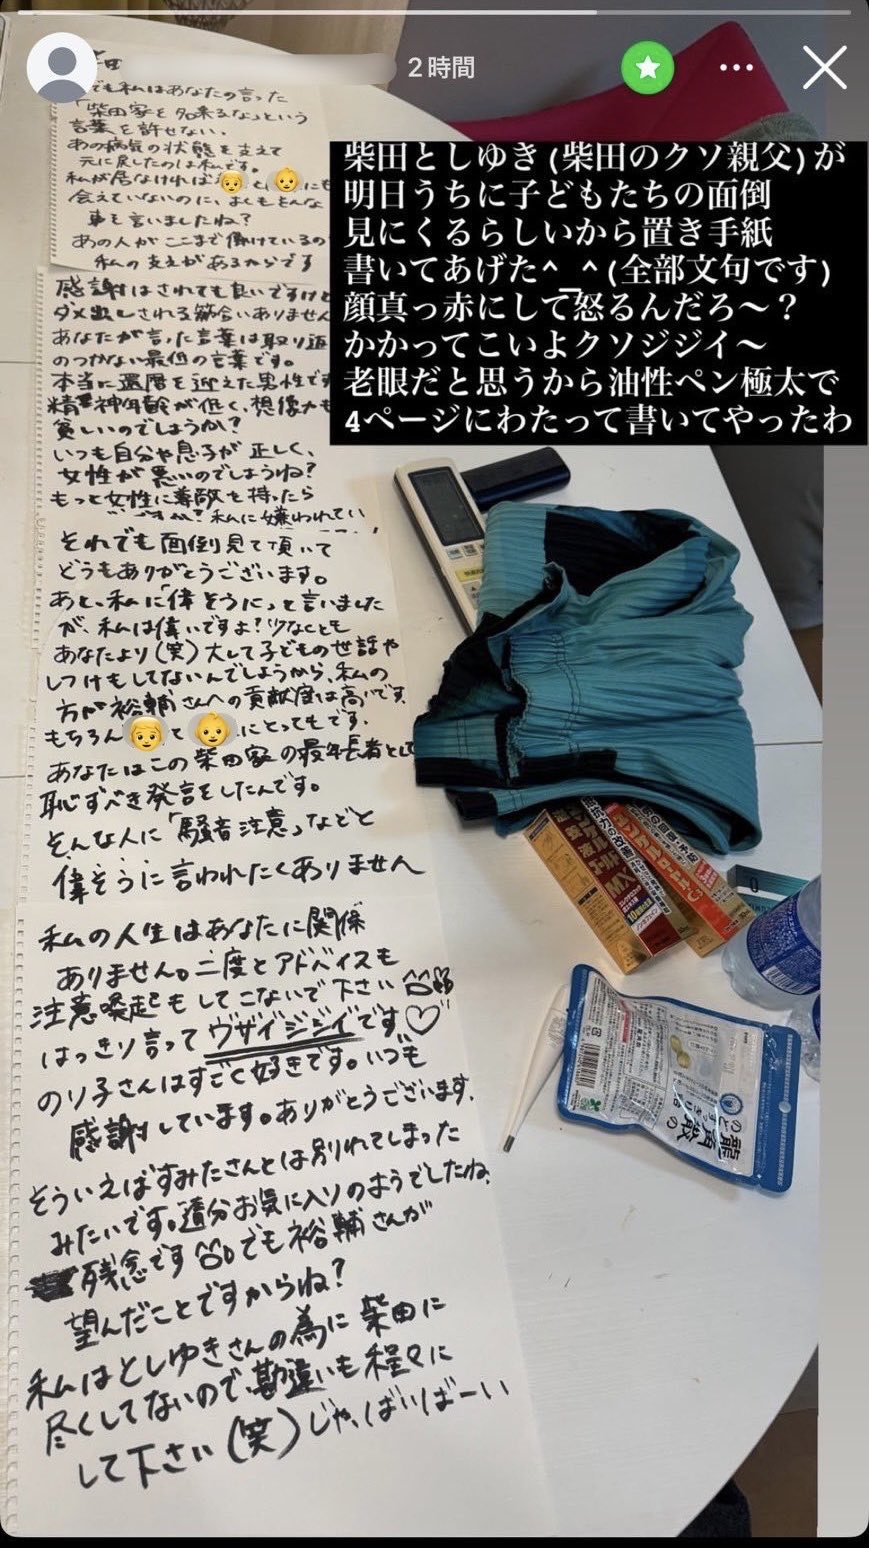 2時間
柴田としゆき(柴田のクソ親父)が
明日うちに子どもたちの面倒
見にくるらしいから置き手紙
書いてあげた^_^(全部文句です)
顔真っ赤にして怒るんだろ〜?
かかってこいよクソジジイ〜
老眼だと思うから油性ペン極太で
4ページにわたって書いてやったわ
でも私はあなたの言った
「柴田家を名乗るな」という
言葉を許せない。
あの病気の状態を支えて
元に戻したのは私です。
私が居なければ👨と👶にも
会えていないのに、よくもそんな
事を言いましたね?
あの人がここまで働けているの
私の支えがあるからです
感謝はされても良いですけど
ダメ出しされる筋合いありません
あなたが言った言葉は取り返
のつかない最低の言葉です。
本当に還暦を迎えた男性です
精神年齢が低く、想像力も
貧しいのでしょうか?
いつも自分や息子が正しく、
女性が悪いのでしょうね?
もっと女性に尊敬を持ったら
私に嫌われてい
それでも面倒見て頂いて
どうもありがとうございます。
あと、私に「偉そうに」と言いました
が、私は偉いですよ!少なくとも
あなたより(笑)大して子どもの世話や
しつけもしてないんでしょうから、私の
方が裕輔さんへの貢献度は高いです
もちろん👦と👶にとってもです。
あなたはこの柴田家の最年長者として
恥ずべき発言をしたんです。
そんな人に「騒音注意」などと
偉そうに言われたくありません
私の人生はあなたに関係
ありません。二度とアドバイスも
注意喚起もしてこないで下さい
はっきり言ってウザイジジイです♡
のり子さんはすごく好きです。いつも
感謝しています。ありがとうございます。
そういえばすみたさんとは別れてしまった
みたいです。随分お気に入りのようでしたね、
残念です でも裕輔さんが
望んだことですからね?
私はとしゆきさんの為に柴田に
尽くしてないので、勘違いも程々に
して下さい(笑)じゃ、ばいばーい
龍角散の
のどすっきり